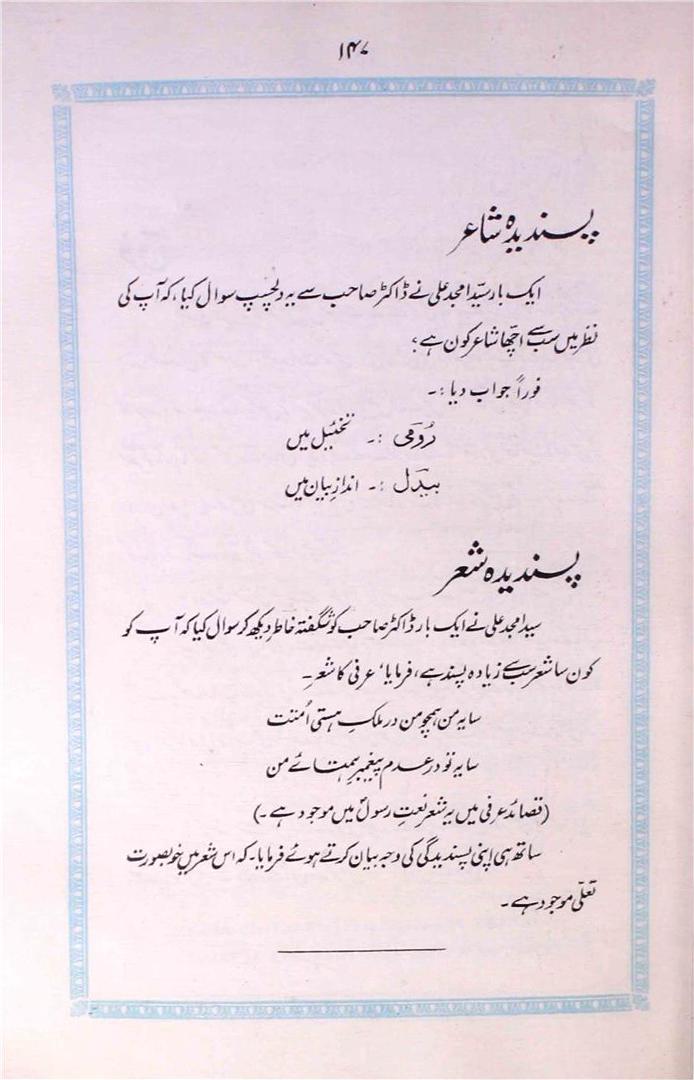 ۱۴۷
پسندیدہ شاعر
ایک بار سیّد امجد علی نے ڈاکٹر صاحب سے یہ دلچسپ سوال کیا، کہ آپ کی
نظر میں سب سے اچھا شاعر کون ہے؟
فوراً جواب دیا :۔
رُومی :۔ تخئیل میں
بیدل :۔ اندازِ بیان میں
پسندیدہ شعر
سید امجد علی نے ایک بار ڈاکٹر صاحب کو شگفتہ خاطر دیکھ کر سوال کیا کہ آپ کو
کون سا شعر سب سے زیادہ پسند ہے، فرمایا، عرفی کا شعر۔
سایہ من ہمچو من در ملکِ ہستی اُمنت
سایہ تو در عدم پیغمبر ہمتائے من
(قصائد عرفی میں یہ شعر نعتِ رسولؐ میں موجود ہے۔)
ساتھ ہی اپنی پسندیدگی کی وجہ بیان کرتے ہوئے فرمایا۔ کہ اس شعر میں خوبصورت
تعلّی موجود ہے۔